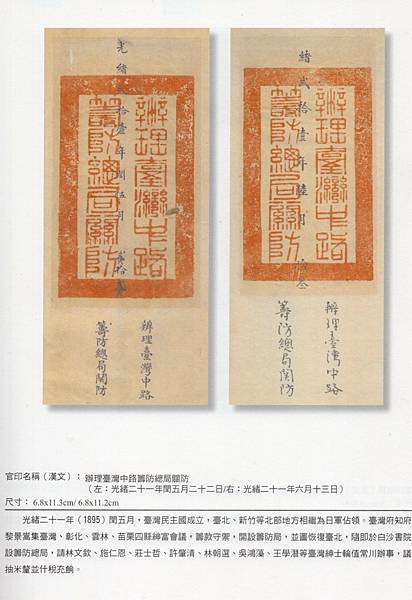 光緒貳拾壹年閏五月
辦理臺灣中路
籌防總局關防
辦理臺灣中路
籌防總局関防
緒貳拾壹年陸月
辦理臺灣中路
籌防總局關防
辦理臺湾中路
籌防總局関防
官印名稱（漢文）：辦理臺灣中路籌防總局關防
（左：光緒二十一年閏五月二十二日/右：光緒二十一年六月十三日）
尺寸： 6.8x11.3cm/ 6.8x11.2cm
光緒二十一年（1895）閏五月，臺灣民主國成立，臺北、新竹等北部地方相繼為日軍佔領。臺灣府知府
黎景嵩集臺灣、彰化、雲林、苗栗四縣紳富會議，籌款守禦，開設籌防局，並圖恢復臺北，隨即於白沙書院
設籌防總局，請林文欽、施仁恩、莊士哲、許肇清、林朝選、吳鴻藻、王學潛等臺灣紳士輪值常川辦事，議
抽米釐並什稅充餉。